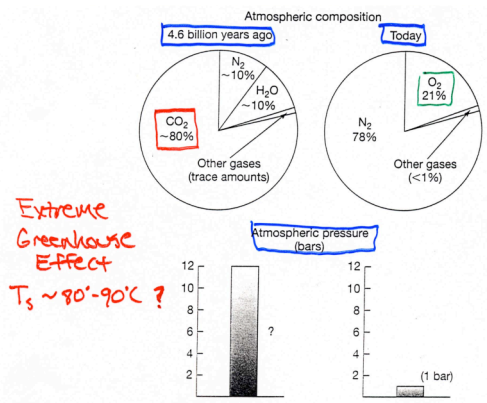 Atmospheric composition
4.6 billion years ago
Today
N₂
~10%
H₂O
~10%
CO₂
~80%
Other gases
(trace amounts)
O₂
21%
N₂
78%
Other gases
(<1%)
Extreme
Greenhouse
Effect
Tₛ ~80°-90°C ?
Atmospheric pressure
(bars)
12
10
8
6
4
2
?
12
10
8
6
4
2
(1 bar)